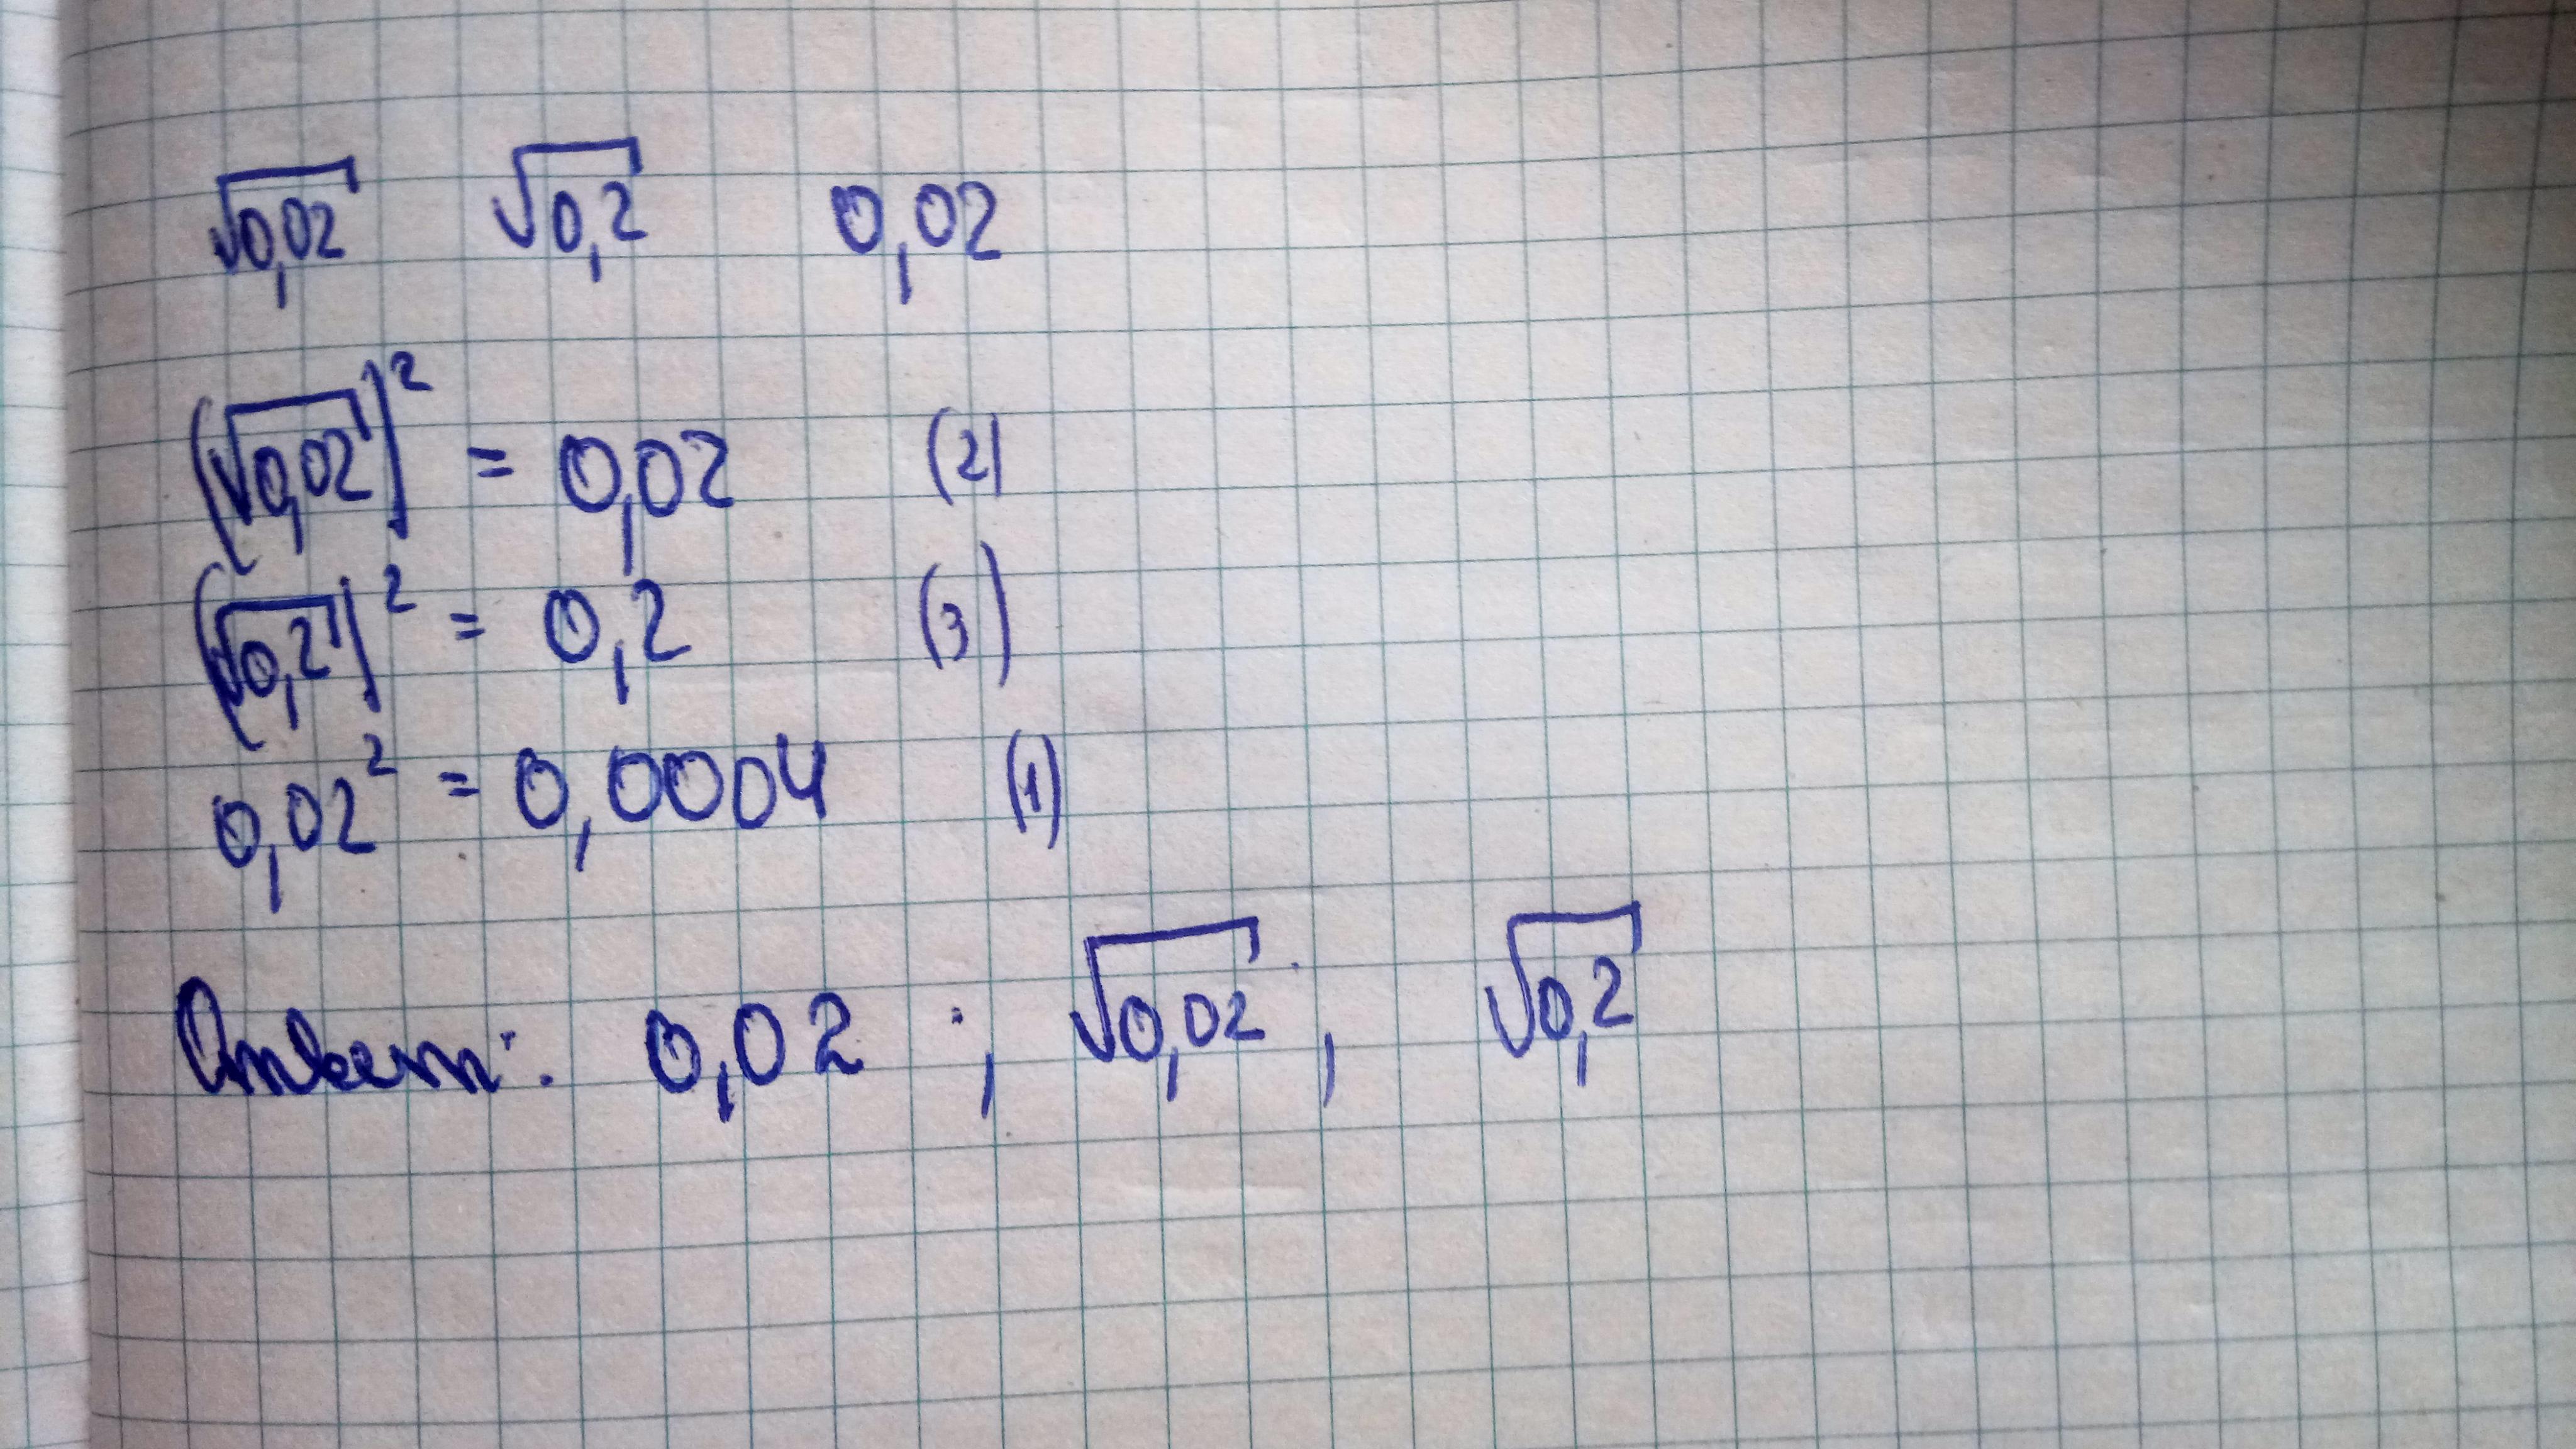 √0,02 √0,2 0,02
(√0,02)² = 0,02 (2)
(√0,2)² = 0,2 (3)
0,02² = 0,0004 (1)
Ответ: 0,02 ; √0,02 , √0,2